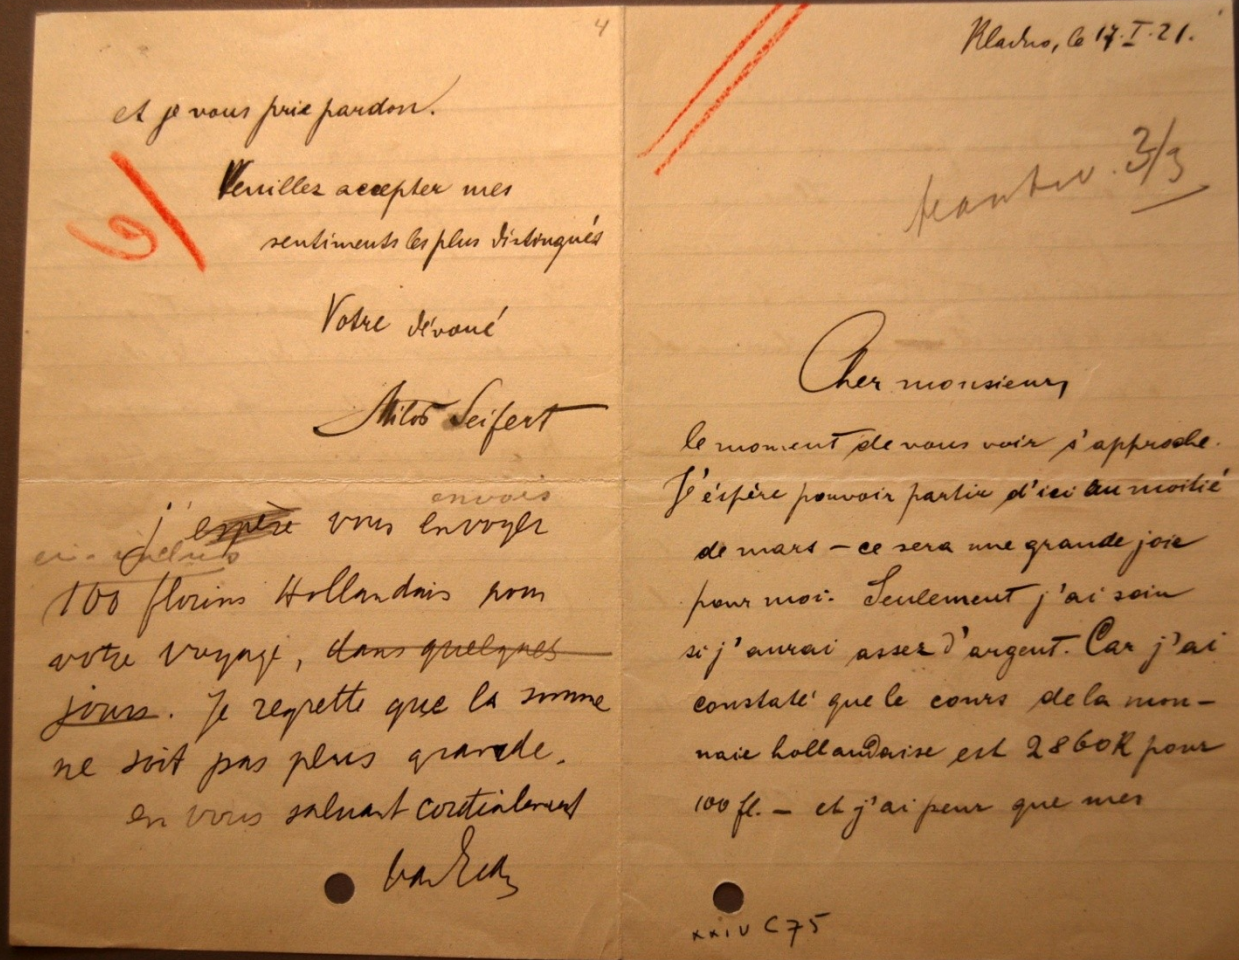 4
et je vous prie pardon.
Veuillez accepter mes
sentiments les plus distingués
Votre dévoué
Miloš Seifert
envois
j'espère vous envoyer
ci-inclus
100 florins Hollandais pour
votre voyage, dans quelques
jours. Je regrette que la somme
ne soit pas plus grande.
en vous saluant cordialement
Kladno, le 17.I.21.
3/3
Cher monsieur,
le moment de vous voir s'approche.
J'éspère pouvoir partir d'ici au moitié
de mars – ce sera une grande joie
pour moi. Seulement j'ai soin
si j'aurai assez d'argent. Car j'ai
constaté que le cours de la mon-
naie hollandaise est 2860K pour
100 fl. – et j'ai peur que mes
XXIV C75